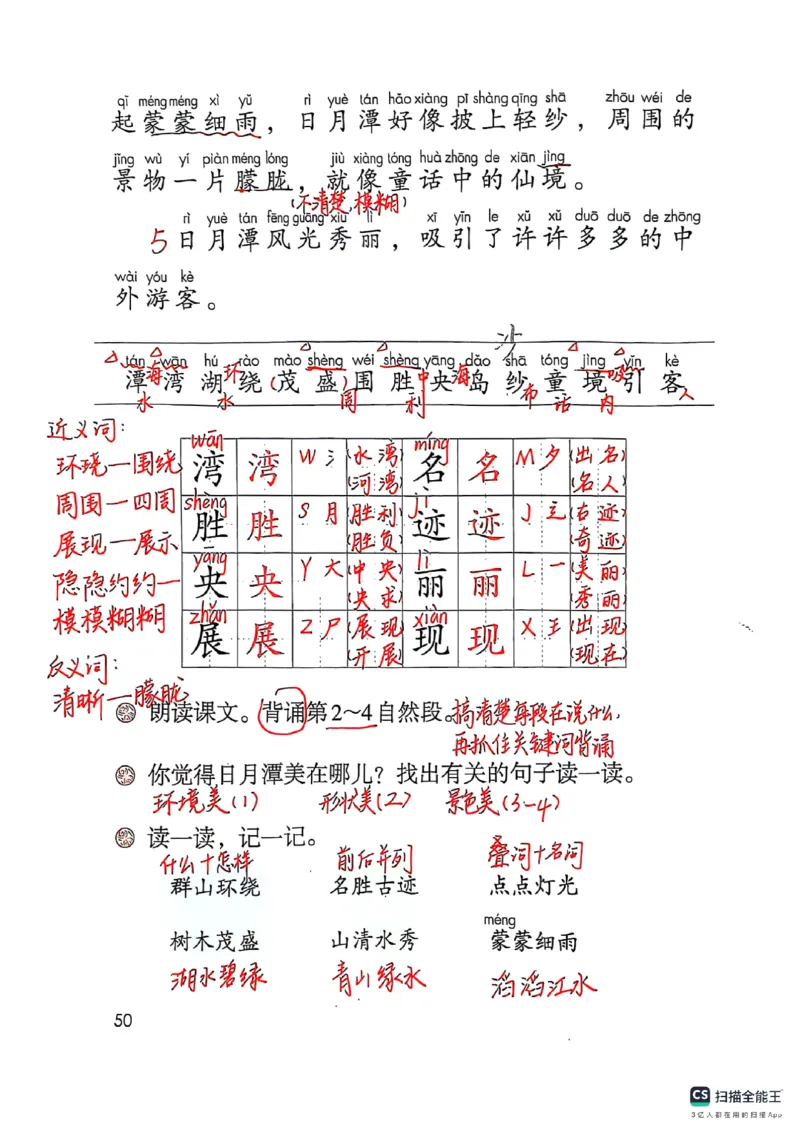 qǐ méngméng xì yǔ rì yuè tán hǎo xiàng pī shàng qīng shā zhōu wéi de
起蒙蒙细雨，日月潭好像披上轻纱，周围的
jǐng wù yí piàn méng lóng jiù xiàng tóng huà zhōng de xiān jìng
景物一片朦胧，就像童话中的仙境。
(不清楚,模糊)
rì yuè tán fēng guāng xiù lì xī yǐn le xǔ xǔ duō duō de zhōng
5日月潭风光秀丽，吸引了许许多多的中
wài yóu kè
外游客。
沙
tán wān hú rào mào shèng wéi shèng yāng dǎo shā tóng jìng yǐn kè
潭海湾湖环绕(茂盛)围胜中央海岛纱童境吸引客
水 水 周 利 布 话 内 人
近义词：
环绕一围绕
周围一四周
展现一展示
隐隐约约一
模模糊糊
反义词：
清晰一朦胧
wān míng
湾 湾 W 氵 (水湾) 名 名 M 夕 (出名)
(河湾) (名人)
shèng jì
胜 胜 S 月 (胜利) 迹 迹 J 辶 (古迹)
(胜负) (奇迹)
yāng lì
央 央 Y 大 (中央) 丽 丽 L 一 (美丽)
(央求) (秀丽)
zhǎn xiàn
展 展 Z 尸 (展现) 现 现 X 王 (出现)
(开展) (现在)
朗读课文。背诵第2～4自然段。搞清楚每段在说什么，
再抓住关键词背诵
你觉得日月潭美在哪儿？找出有关的句子读一读。
环境美(1) 形状美(2) 景色美(3-4)
读一读，记一记。
什么+怎样 前后并列 叠词+名词
群山环绕 名胜古迹 点点灯光
méng
树木茂盛 山清水秀 蒙蒙细雨
湖水碧绿 青山绿水 滔滔江水
50
CS 扫描全能王
3亿人都在用的扫描App